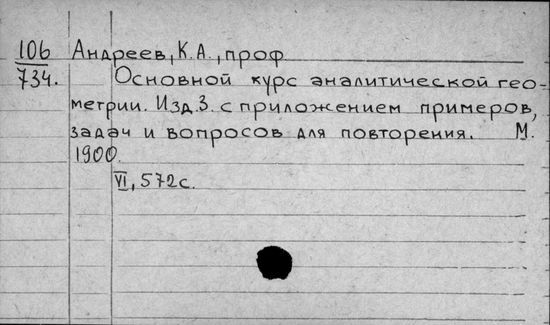 106 Андреев, К.А., проф
734. Основной курс аналитической гео-
метрии. Изд.3. с приложением примеров,
задач и вопросов для повторения. М.
1900.
VI, 572с.